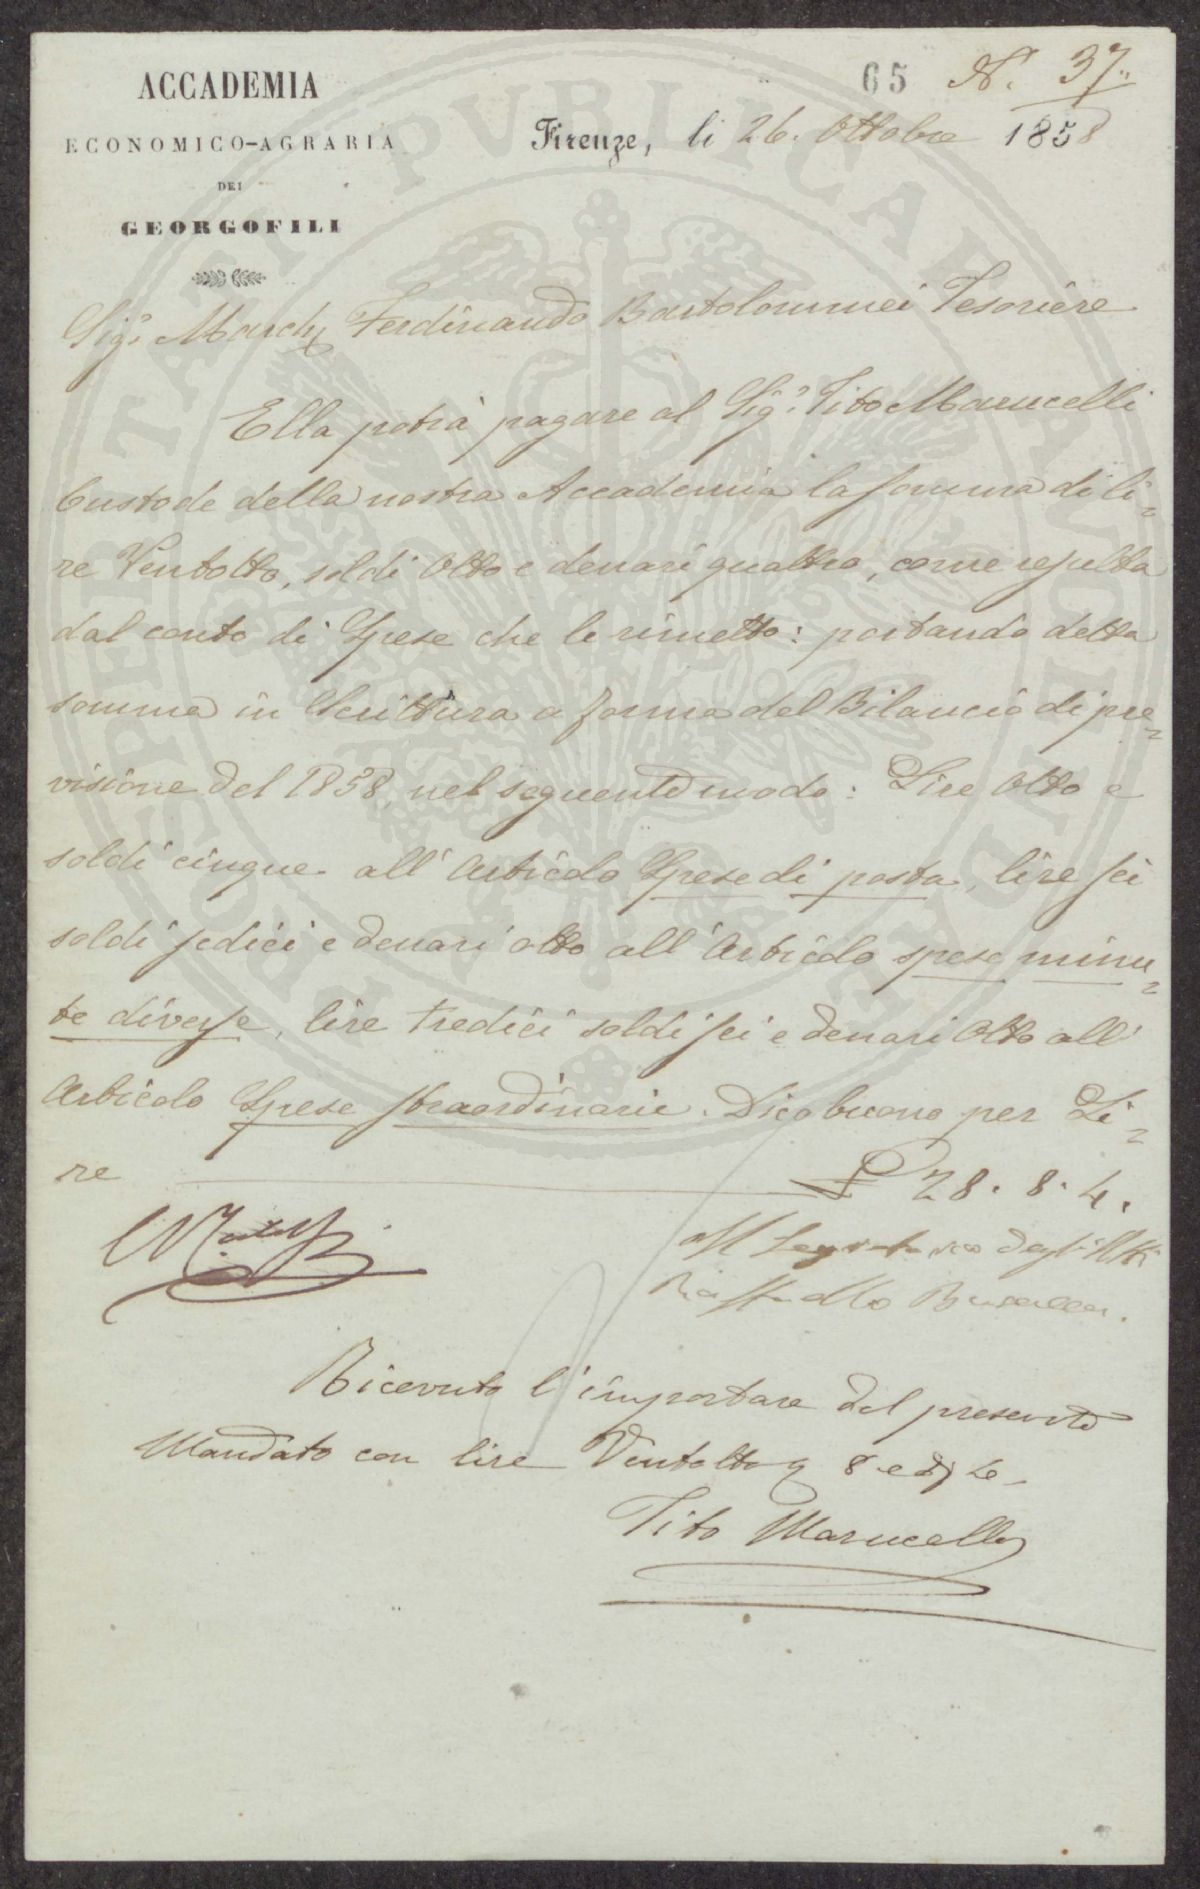 65 N. 37.
ACCADEMIA
ECONOMICO-AGRARIA
DEI
GEORGOFILI
Firenze, li 26. Ottobre 1858
Sig. March. Ferdinando Bartolommei Tesoriere
Ella potrà pagare al Sig. Tito Marucelli
Custode della nostra Accademia la somma di li=
re Ventotto, soldi Otto e denari quattro, come resulta
dal conto di Spese che le rimetto: portando detta
somma in Scrittura a forma del Bilancio di pre=
visione del 1858, nel seguente modo: Lire Otto e
soldi cinque all'Articolo Spese di posta, lire sei
soldi sedici e denari otto all'Articolo spese minu=
te diverse, lire tredici soldi sei e denari Otto all'
Articolo Spese straordinarie. Dico buono per Li=
re £ 28. 8. 4.
Il Segretario degli Atti
Raffaello Busacca.
Ricevuto l'importare del presente
Mandato con lire Ventotto 8 e 4
Tito Marucelli
PROSPERITATI PVBLICAE AVGENDAE